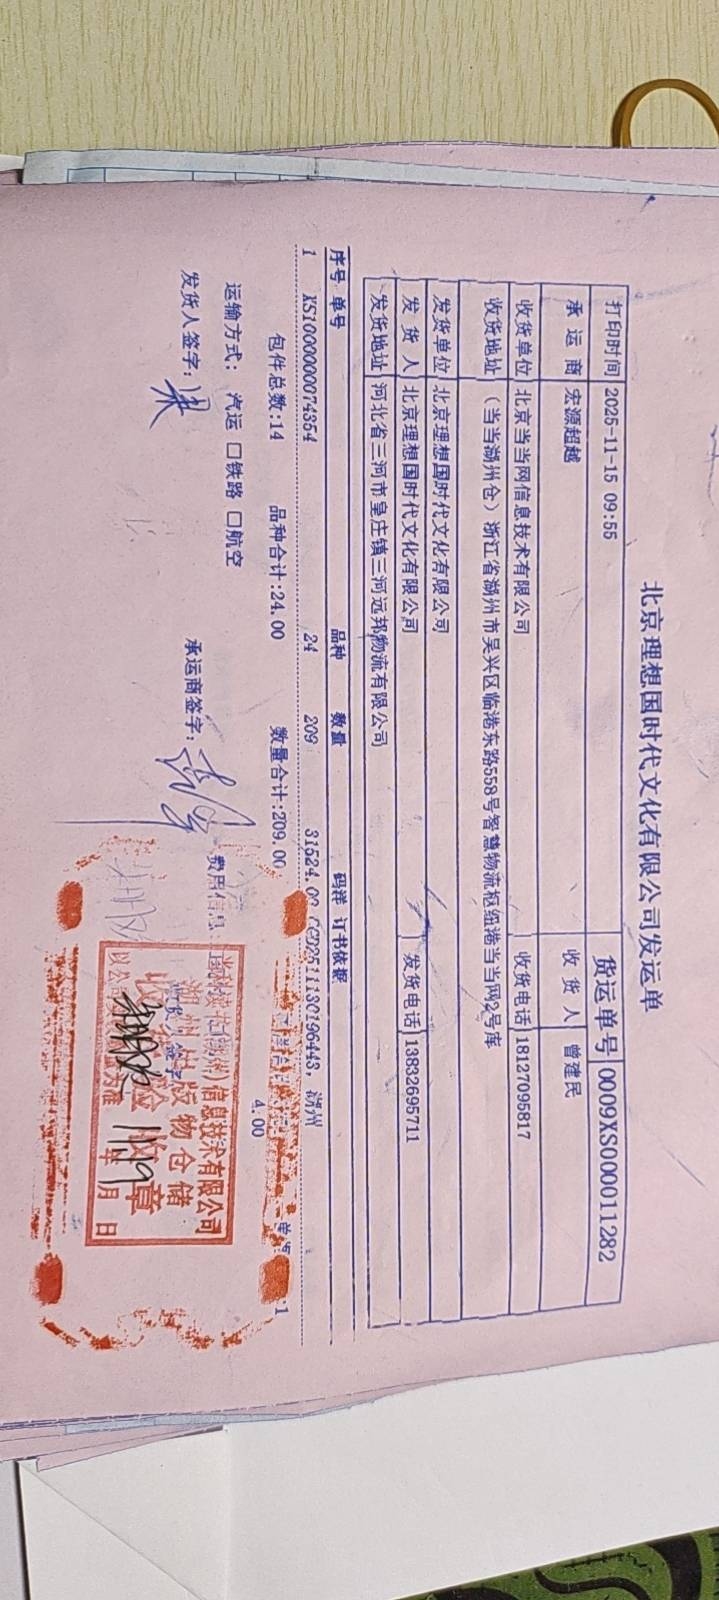 北京理想国时代文化有限公司发运单
打印时间 2025-11-15 09:55 货运单号 0009XS000011282
承运商 宏源超越 收货人 曾建民
收货单位 北京当当网信息技术有限公司 收货电话 18127095817
收货地址 (当当湖州仓)浙江省湖州市吴兴区临港东路558号智慧物流枢纽港当当网2号库
发货单位 北京理想国时代文化有限公司
发货人 北京理想国时代文化有限公司 发货电话 13832695711
发货地址 河北省三河市皇庄镇三河远邦物流有限公司
序号 单号 品种 数量 码洋 订书依据
1 XS1000000074354 24 209 31524.00 湖州
包件总数:14 品种合计:24.00 数量合计:209.00 4.00
运输方式: 汽运 □铁路 □航空 费用信息:
发货人签字: 承运商签字:
信息技术有限公司
湖州出版物仓储
收 验收章
年 月 日